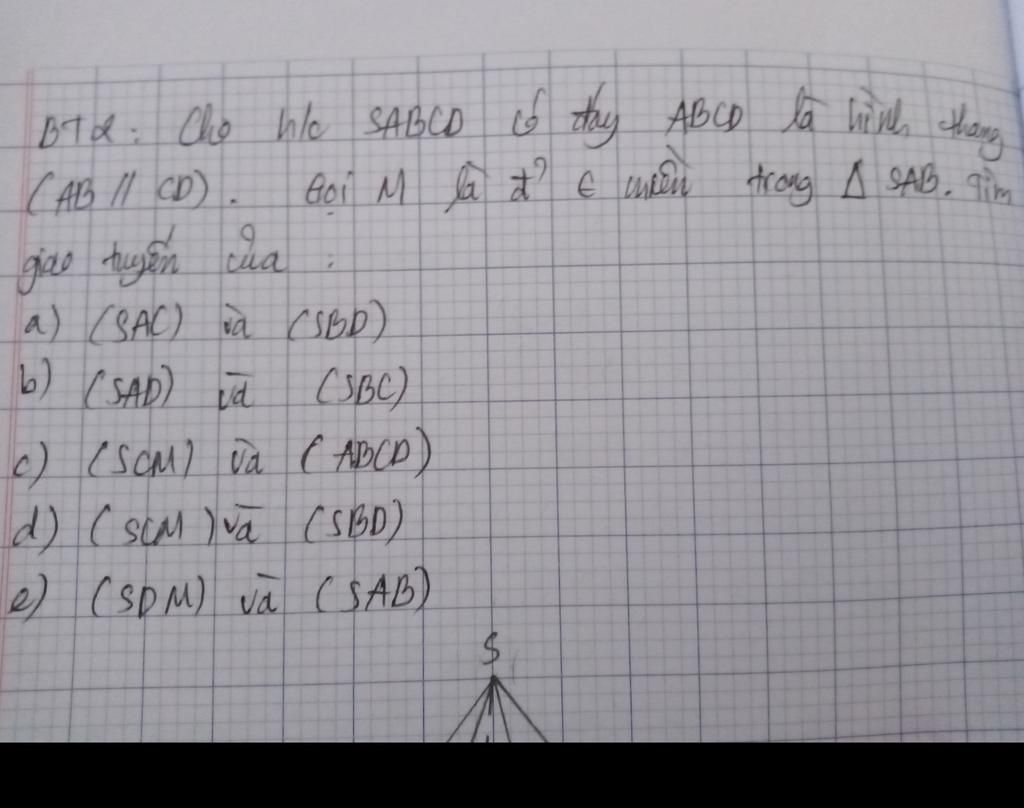 BT2: Cho h/c SABCD có đáy ABCD là hình thang
(AB // CD). Gọi M là đ' ∈ miền trong Δ SAB. Tìm
giao tuyến của :
a) (SAC) và (SBD)
b) (SAD) và (SBC)
c) (SCM) và (ABCD)
d) (SCM) và (SBD)
e) (SDM) và (SAB)
S